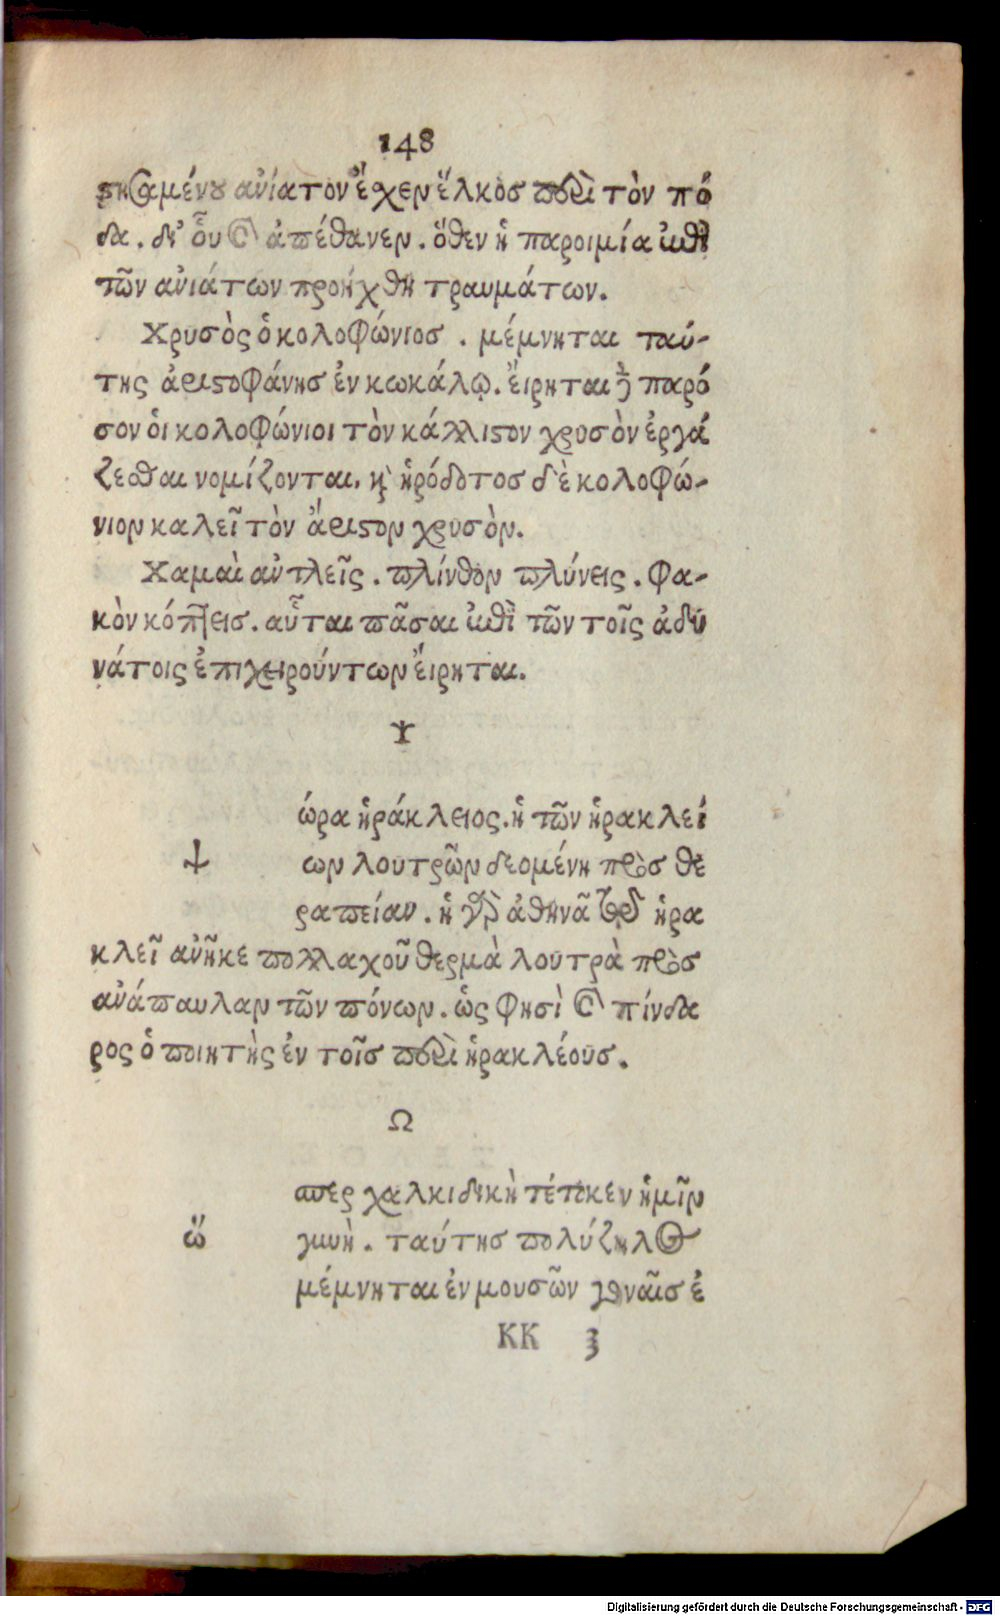 148
στησαμένου ἀνίατον ἔχεν ἕλκος περὶ τὸν πό
δα. δι' οὗ καὶ ἀπέθανεν. ὅθεν ἡ παροιμία ἐπὶ
τῶν ἀνιάτων προήχθη τραυμάτων.
Χρυσὸς ὁ κολοφώνιος. μέμνηται ταύ-
της ἀριστοφάνης ἐν κωκάλῳ. ἔιρηται δὲ παρό
σον ὁι κολοφώνιοι τὸν κάλλιστον χρυσὸν ἐργά
ζεσθαι νομίζονται. καὶ ἡρόδοτος δὲ κολοφώ-
νιον καλεῖ τὸν ἄριστον χρυσὸν.
Χαμαὶ ἀντλεῖς. πλίνθον πλύνεις. φα-
κὸν κόπτεις. αὗται πᾶσαι ἐπὶ τῶν τοῖς ἀδυ
νάτοις ἐπιχειρούντων ἔιρηται.
Ψ
ώρα ἡράκλειος. ἡ τῶν ἡρακλεί
Ψ ων λουτρῶν δεομένη πρὸς θε
ραπείαν. ἡ γὰρ ἀθηνᾶ τῷ ἡρα
κλεῖ ἀνῆκε πολλαχοῦ θερμὰ λουτρὰ πρὸς
ἀνάπαυλαν τῶν πόνων. ὡς φησὶ καὶ πίνδα
ρος ὁ ποιητὴς ἐν τοῖς περὶ ἡρακλέους.
Ω
σπερ χαλκιδικὴ τέτοκεν ἡμῖν
ὥ γυνὴ. ταύτης πολύζηλος
μέμνηται ἐν μουσῶν γοναῖς ἐ
KK 3
Digitalisierung gefördert durch die Deutsche Forschungsgemeinschaft - DFG